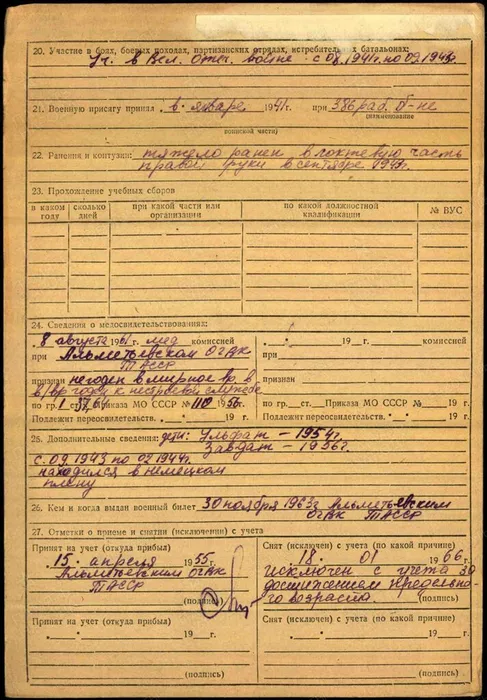 20. Участие в боях, боевых походах, партизанских отрядах, истребительных батальонах:
Уч. в Вел. Отеч. войне с 08.1941г. по 09.1943г.
21. Военную присягу принял в январе 1941 г. при 386 раб. б-не
(наименование
воинской части)
22. Ранения и контузии: тяжело ранен в локтевую часть
правой руки в сентябре 1943г.
23. Прохождение учебных сборов
в каком году сколько дней при какой части или организации по какой должностной квалификации № ВУС
24. Сведения о медосвидетельствованиях:
8 августа 1961 г. мед комиссией
при Альметьевском ОГВК
ТАССР
признан негоден в мирное вр. в
в/вр годен к нестроевой службе
по гр. I ст. Приказа МО СССР № 110 1956г.
Подлежит переосвидетельств. 19 г.
" " 19 г. комиссией
при
признан
по гр. ст. Приказа МО СССР № 19 г.
Подлежит переосвидетельств. 19 г.
25. Дополнительные сведения: дети: Ульфат – 1954г.
Завдат – 1956г.
с 09.1943 по 02.1944г.
находился в немецком
плену
26. Кем и когда выдан военный билет 30 ноября 1963г Альметьевским
ОГВК ТАССР
27. Отметки о приеме и снятии (исключении) с учета
Принят на учет (откуда прибыл)
15. апреля 1955 г.
Альметьевским ОГВК
ТАССР
(подпись)
Снят (исключен) с учета (по какой причине)
18. 01 1966 г.
исключен с учета за
достижением предельно-
го возраста.
(подпись)
Принят на учет (откуда прибыл)
19 г.
(подпись)
Снят (исключен) с учета (по какой причине)
19 г.
(подпись)